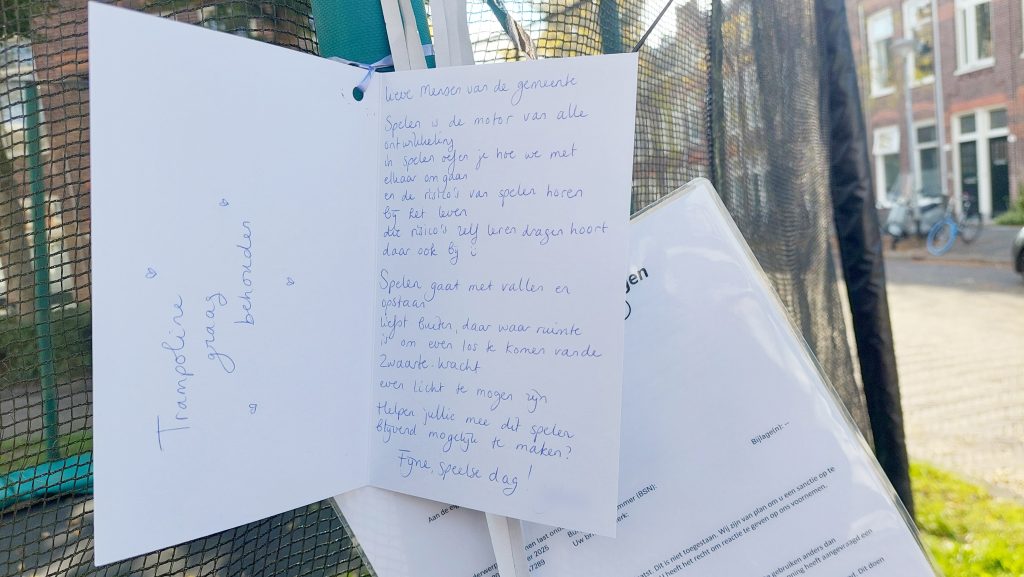 Trampoline
graag
behouden
lieve mensen van de gemeente
Spelen is de motor van alle
ontwikkeling
in spelen oefen je hoe we met
elkaar om gaan
en de risico's van spelen horen
bij het leven
die risico's zelf leren dragen hoort
daar ook bij
Spelen gaat met vallen en
opstaan
liefst buiten, daar waar ruimte
is om even los te komen van de
zwaarte-kracht
even licht te mogen zijn
Helpen jullie mee dit spelen
blijvend mogelijk te maken?
Fijne, speelse dag!
gen
Bijlage(n): --
Aan de
ummer (BSN):
erk:
Uw
men last
r 2025
7289
nderwerp
atst. Dit is niet toegestaan. Wij zijn van plan om u een sanctie op te
U heeft het recht om reactie te geven op ons voornemen.
gebruiken anders dan
nning heeft aangevraagd een
al. Dit doen